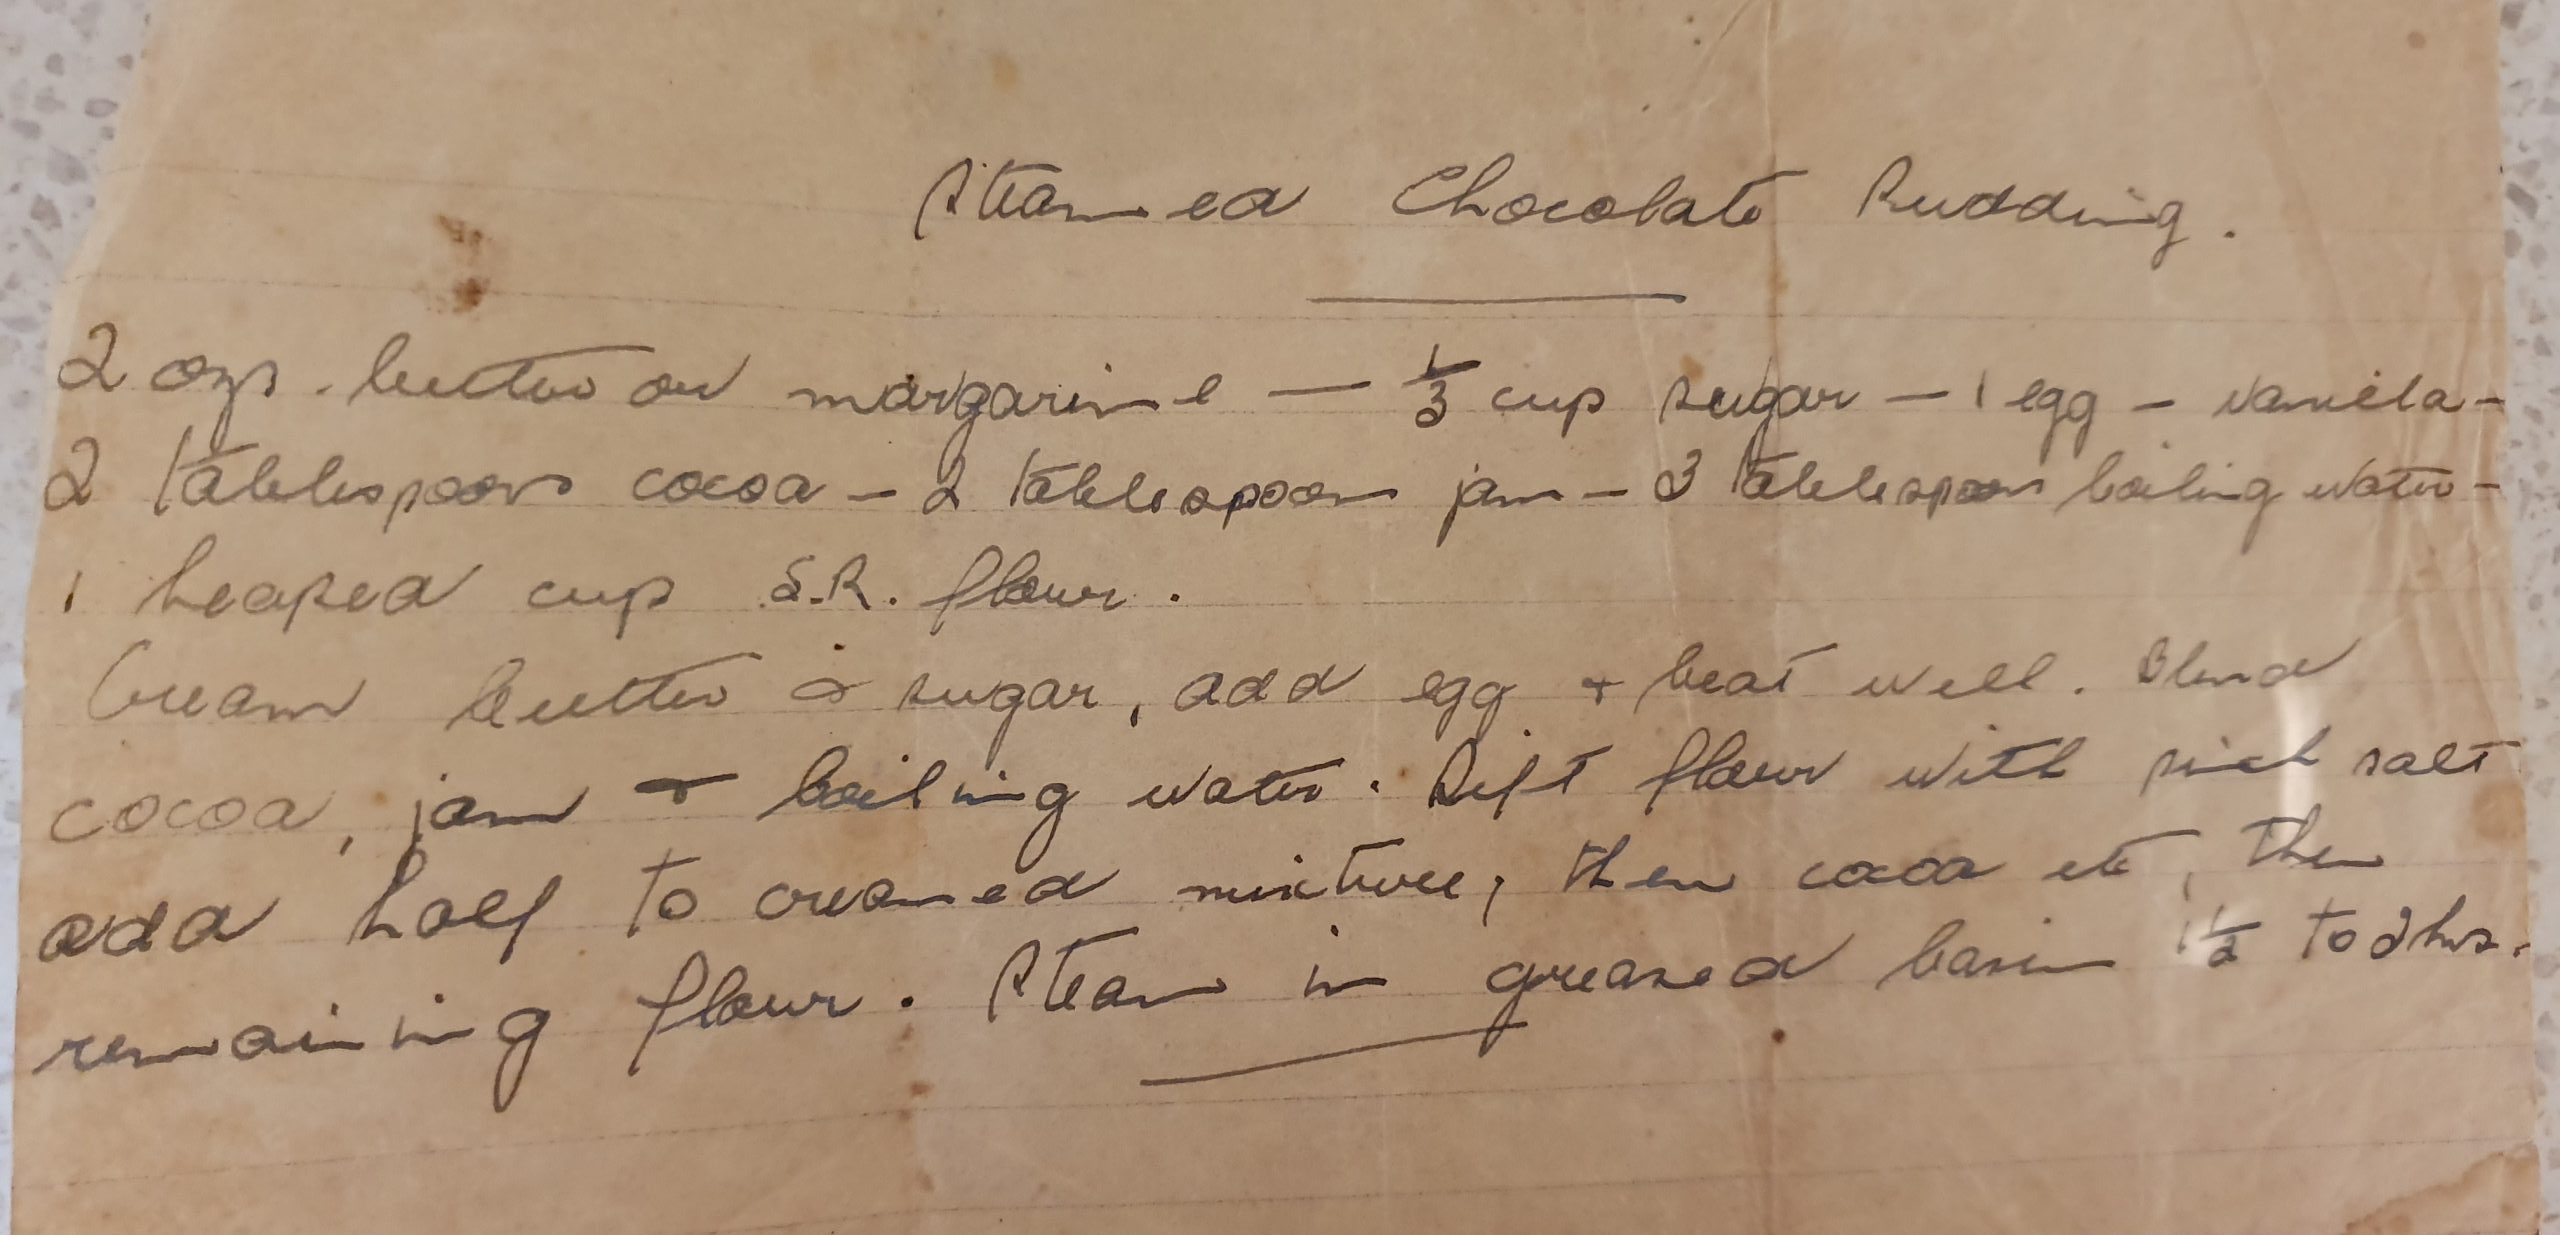 Steamed Chocolate Pudding.
2 ozs. butter or margarine — 1/3 cup sugar — 1 egg — vanilla —
2 tablespoons cocoa — 2 tablespoon jam — 3 tablespoons boiling water —
1 heaped cup S.R. flour.
Cream butter & sugar, add egg + beat well. Blend
cocoa, jam + boiling water. Sift flour with pinch salt
add half to creamed mixture, then cocoa etc, then
remaining flour. Steam in greased basin 1 1/2 to 2 hrs.